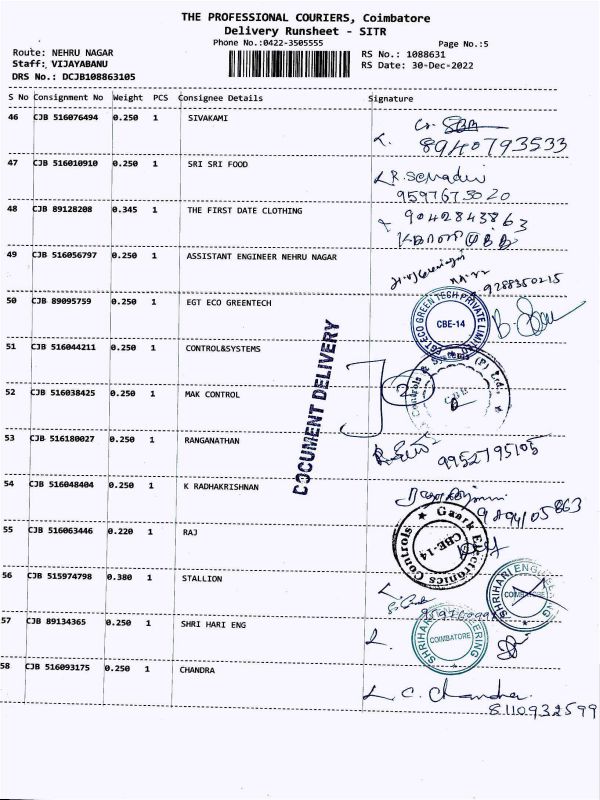 THE PROFESSIONAL COURIERS, Coimbatore
Delivery Runsheet - SITR
Phone No.:0422-3505555
Page No.:5
Route: NEHRU NAGAR
RS No.: 1088631
Staff: VIJAYABANU
RS Date: 30-Dec-2022
DRS No.: DCJB108863105
S No Consignment No Weight PCS Consignee Details Signature
46 CJB 516076494 0.250 1 SIVAKAMI
8940793533
47 CJB 516010910 0.250 1 SRI SRI FOOD
9597673020
48 CJB 89128208 0.345 1 THE FIRST DATE CLOTHING
9042843863
49 CJB 516056797 0.250 1 ASSISTANT ENGINEER NEHRU NAGAR
9288350215
50 CJB 89095759 0.250 1 EGT ECO GREENTECH
EGT ECO GREEN TECH PRIVATE LIMITED
CBE-14
51 CJB 516044211 0.250 1 CONTROL&SYSTEMS
Controls & Systems (P) Ltd.,
DOCUMENT DELIVERY
52 CJB 516038425 0.250 1 MAK CONTROL
53 CJB 516180027 0.250 1 RANGANATHAN
9952795105
54 CJB 516048404 0.250 1 K RADHAKRISHNAN
9894105863
55 CJB 516063446 0.220 1 RAJ
Gaark Electronics Controls
CBE-14
56 CJB 515974798 0.380 1 STALLION
SHRIHARI ENGINEERING
COIMBATORE
57 CJB 89134365 0.250 1 SHRI HARI ENG
SHRIHARI ENGINEERING
COIMBATORE
58 CJB 516093175 0.250 1 CHANDRA
C. Chandra.
8110932599